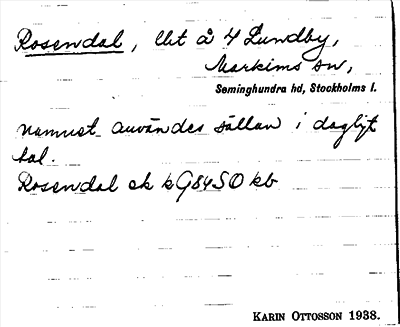 Rosendal, lht å 4 Lundby,
Markims sn,
Seminghundra hd, Stockholms l.
Namnet användes sällan i dagligt
tal.
Rosendal ek kG84SO kb
KARIN OTTOSSON 1938.